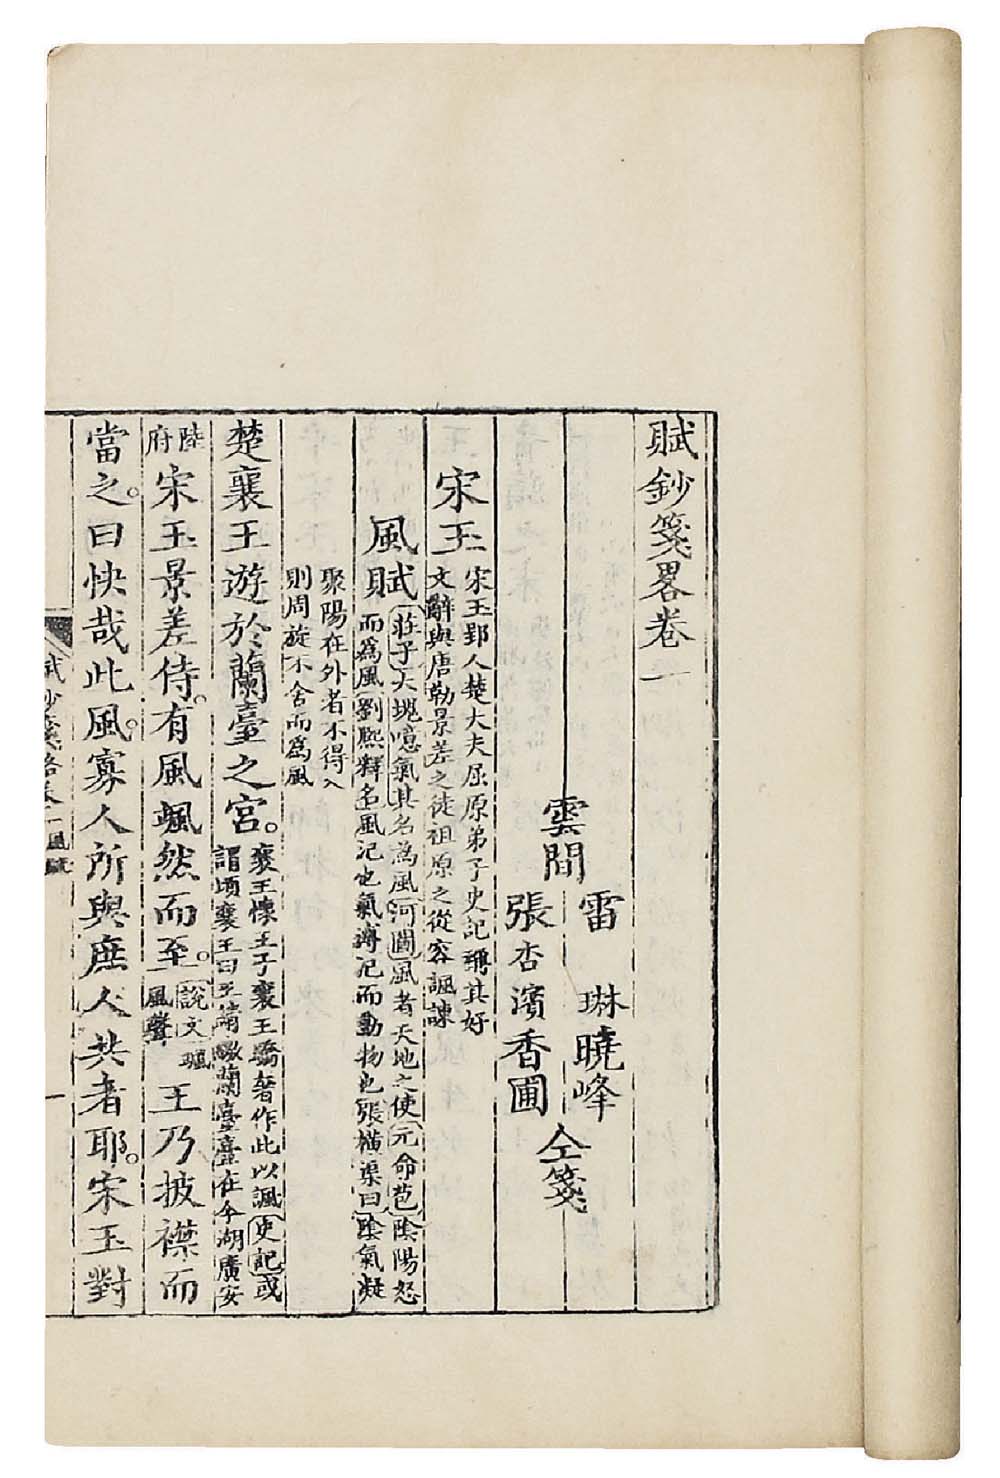 賦鈔箋畧卷一
雲間
雷琳曉峰
張杏濱香圃
仝箋
宋玉
宋玉郢人楚大夫屈原弟子史記稱其好
文辭與唐勒景差之徒祖原之從容諷諫
風賦
莊子大塊噫氣其名為風河圖風者天地之使元命苞陰陽怒
而爲風劉熙釋名風汜也氣溥汜而動物也張橫渠曰陰氣凝
聚陽在外者不得入
則周旋不舍而爲風
楚襄王遊於蘭臺之宮。
襄王懷王子襄王驕奢作此以諷史記或
謂頃襄王曰王繳蘭臺臺在今湖廣安
陸
府
宋玉景差侍。有風颯然而至。
說文颯
風聲
王乃披襟而
當之。曰快哉此風。寡人所與庶人共者耶。宋玉對
賦鈔箋畧卷一 風賦
一